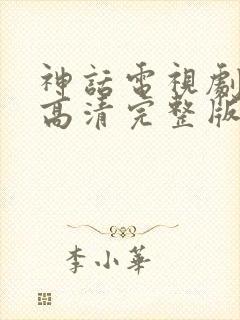 神話電視劇
高清完整版
李小華